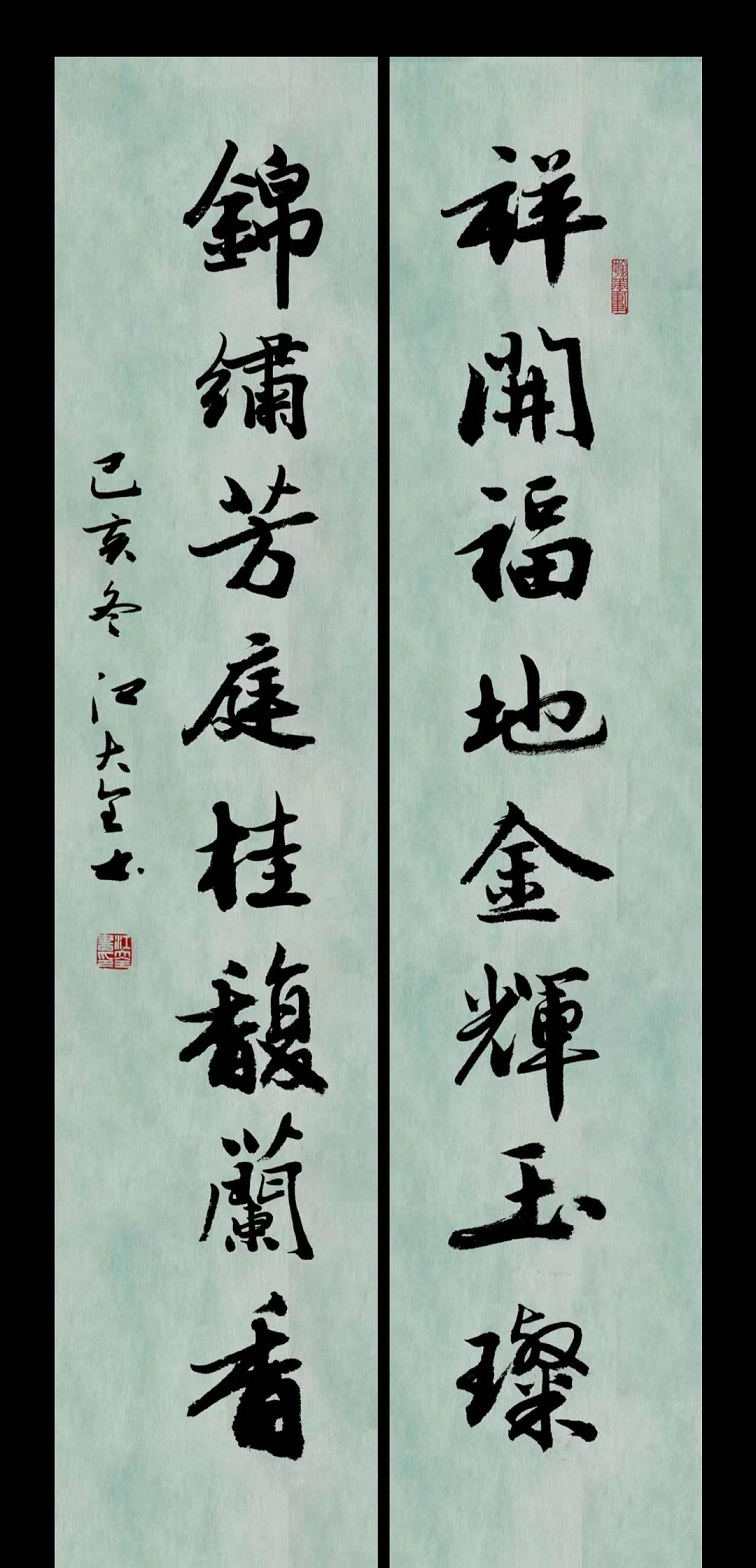 祥開福地金輝玉璨
錦繡芳庭桂馥蘭香
己亥冬江大全书